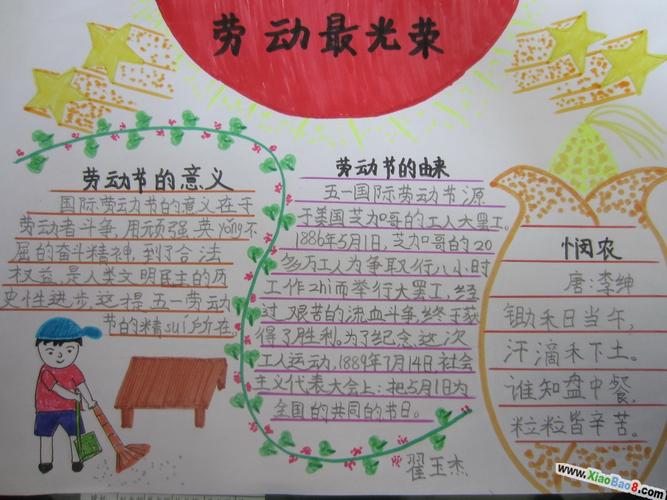 劳动最光荣
劳动节的意义
国际劳动节的意义在于
劳动者斗争,用顽强、英yǒng不
屈的奋斗精神,到了合法
权益,是人类文明民主的历
史性进步,这才是五一劳动
节的精suǐ所在。
劳动节的由来
五一国际劳动节源
于美国芝加哥的工人大罢工。
1886年5月1日,芝加哥的20
多万工人为争取行八小时
工作zhì而举行大罢工,经
过艰苦的流血斗争,终于获
得了胜利。为了纪念这次
工人运动,1889年7月14日,社会
主义代表大会上:把5月1日为
全国的共同的节日。
悯农
唐:李绅
锄禾日当午,
汗滴禾下土。
谁知盘中餐,
粒粒皆辛苦。
翟玉杰
www.XiaoBao8.com